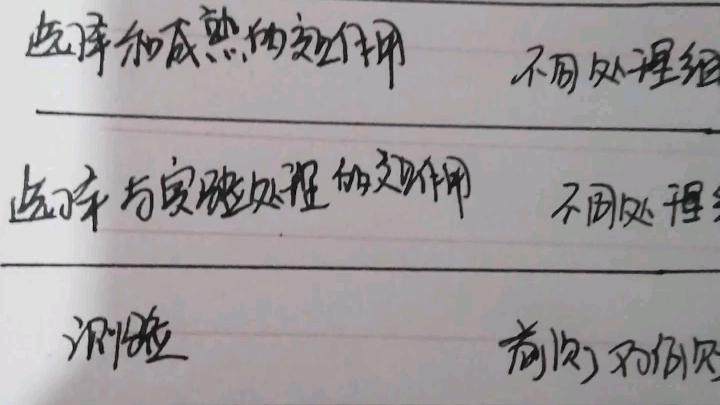 选择和成熟的交互作用 不同处理组
选择与实验处理的交互作用 不同处理
测验 前测对后测